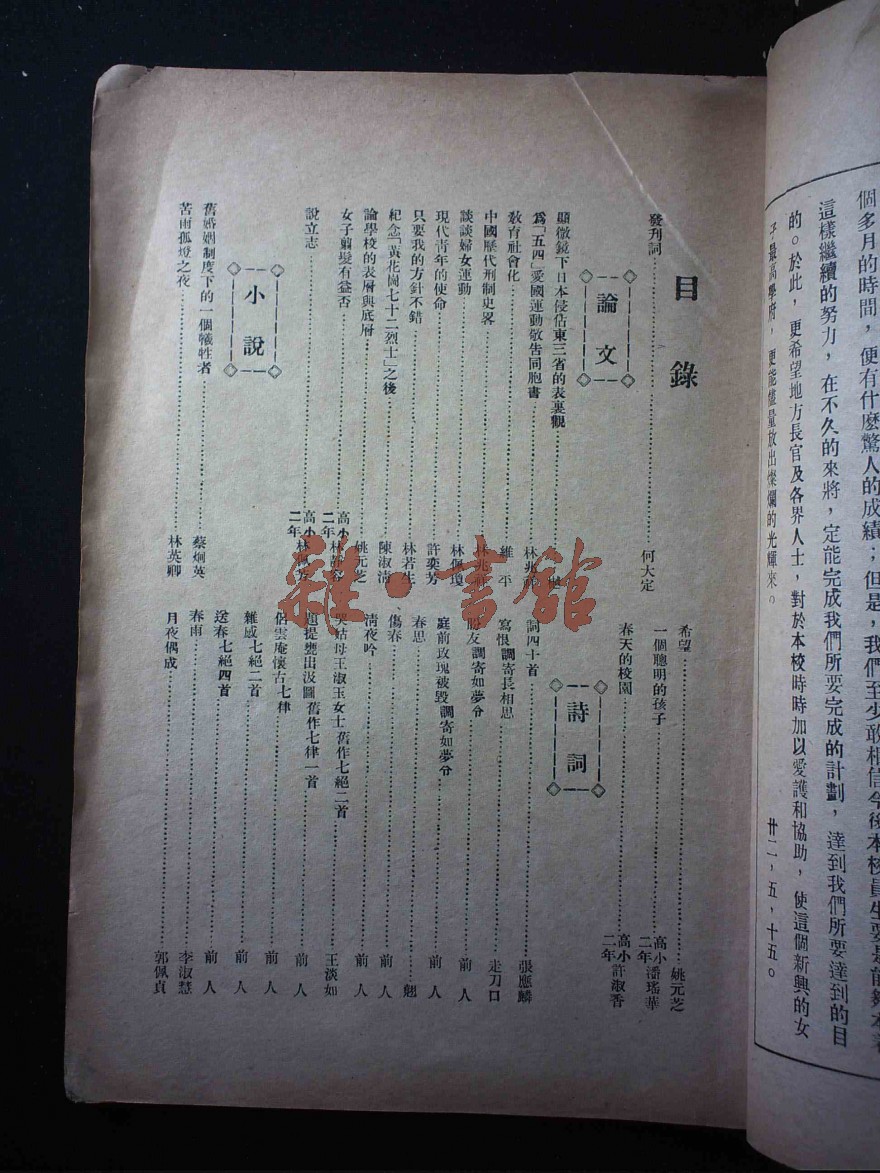 個多月的時間，便有什麼驚人的成績；但是，我們至少敢相信今後本校員生要是能夠本著
這樣繼續的努力，在不久的來將，定能完成我們所要完成的計劃，達到我們所要達到的目
的。於此，更希望地方長官及各界人士，對於本校時時加以愛護和協助，使這個新興的女
子最高學府，更能儘量放出燦爛的光輝來。
廿二，五，十五。
目錄
發刊詞 何大定
論文
顯微鏡下日本侵佔東三省的表裏觀
爲「五四」愛國運動敬告同胞書 林兆
教育社會化 維平
中國歷代刑制史畧 林兆
談談婦女運動 林佩瓊
現代青年的使命 許奕芳
只要我的方針不錯 林若生
紀念「黃花崗七十二烈士」之後 陳淑清
論學校的表層與底層 姚元芝
女子剪髮有益否 高小二年 林靜
說立志 高小二年 林佩芳
小說
舊婚姻制度下的一個犧牲者 蔡炯英
苦雨孤燈之夜 林英卿
希望 姚元芝
一個聰明的孩子 高小二年 潘瑤華
春天的校園 高小二年 許淑香
詩詞
詞四十首 張應麟
寫恨調寄長相思 走刀口
友調寄如夢令 前人
庭前玫瑰被毀調寄如夢令 前人
春思 翹
傷春 前人
清夜吟 前人
哭姑母王淑玉女士舊作七絕二首 王淡如
題提甕出汲圖舊作七律一首 前人
侶雲庵懷古七律 前人
雜感七絕二首 前人
送春七絕四首 前人
春雨 李淑慧
月夜偶成 郭佩貞
雜·書館